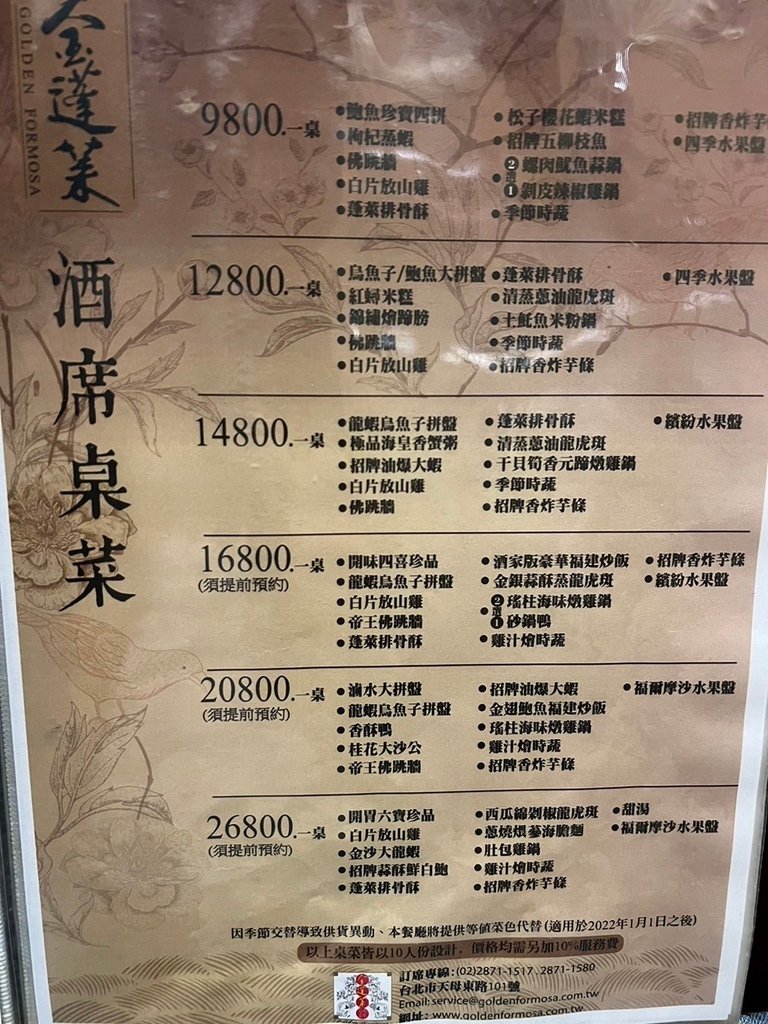 金蓬萊
GOLDEN FORMOSA
酒席桌菜
9800.一桌
●鮑魚珍寶四拼
●枸杞蒸蝦
●佛跳牆
●白片放山雞
●蓬萊排骨酥
●松子櫻花蝦米糕
●招牌五柳枝魚
●2選1 螺肉魷魚蒜鍋
剝皮辣椒雞鍋
●季節時蔬
●招牌香炸芋
●四季水果盤
12800.一桌
●烏魚子/鮑魚大拼盤
●紅蟳米糕
●錦繡燴蹄膀
●佛跳牆
●白片放山雞
●蓬萊排骨酥
●清蒸蔥油龍虎斑
●土魠魚米粉鍋
●季節時蔬
●招牌香炸芋條
●四季水果盤
14800.一桌
●龍蝦烏魚子拼盤
●極品海皇香蟹粥
●招牌油爆大蝦
●白片放山雞
●佛跳牆
●蓬萊排骨酥
●清蒸蔥油龍虎斑
●干貝筍香元蹄燉雞鍋
●季節時蔬
●招牌香炸芋條
●繽紛水果盤
16800.一桌
(須提前預約)
●開味四喜珍品
●龍蝦烏魚子拼盤
●白片放山雞
●帝王佛跳牆
●蓬萊排骨酥
●酒家版豪華福建炒飯
●金銀蒜酥蒸龍虎斑
●2選1 瑤柱海味燉雞鍋
砂鍋鴨
●雞汁燴時蔬
●招牌香炸芋條
●繽紛水果盤
20800.一桌
(須提前預約)
●滷水大拼盤
●龍蝦烏魚子拼盤
●香酥鴨
●桂花大沙公
●帝王佛跳牆
●招牌油爆大蝦
●金翅鮑魚福建炒飯
●瑤柱海味燉雞鍋
●雞汁燴時蔬
●招牌香炸芋條
●福爾摩沙水果盤
26800.一桌
(須提前預約)
●開胃六寶珍品
●白片放山雞
●金沙大龍蝦
●招牌蒜酥鮮白鮑
●蓬萊排骨酥
●西瓜綿剁椒龍虎斑
●蔥燒煨蔘海膽麵
●肚包雞鍋
●雞汁燴時蔬
●招牌香炸芋條
●甜湯
●福爾摩沙水果盤
因季節交替導致供貨異動、本餐廳將提供等值菜色代替(適用於2022年1月1日之後)
以上桌菜皆以10人份設計，價格均需另加10%服務費
訂席專線:(02)2871-1517．2871-1580
台北市天母東路101號
Email:service@goldenformosa.com.tw
網址:www.goldenformosa.com.tw